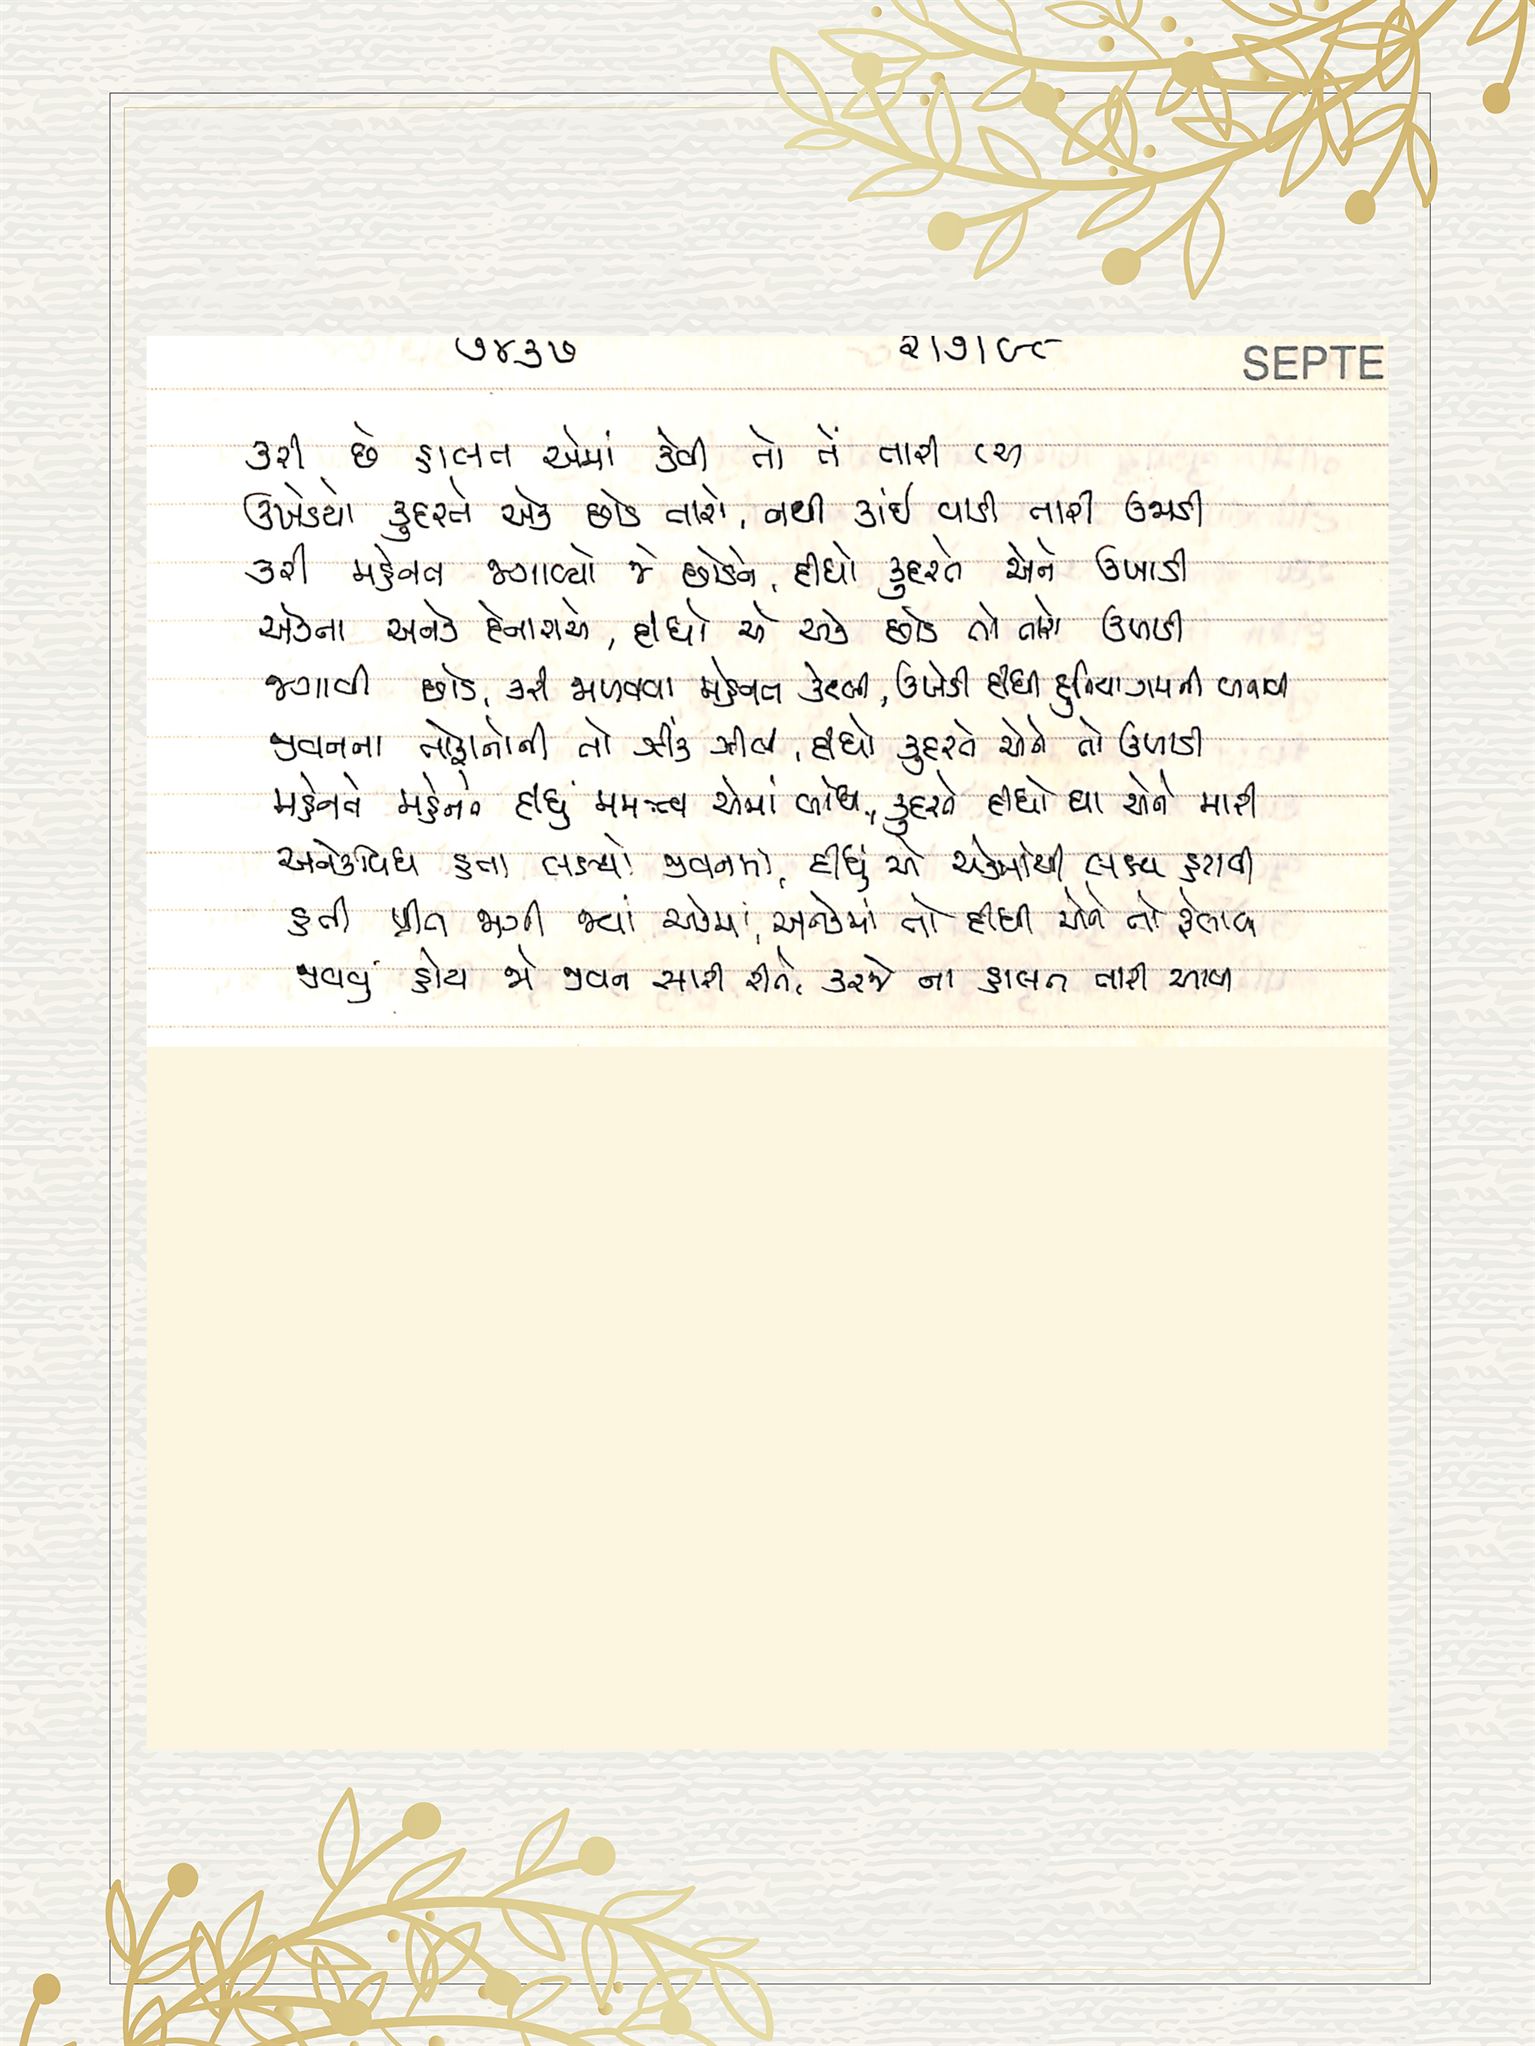 ૭૪૩૭ ૨|૭|૯૮ SEPTE
કરી છે હાલત એમાં કેવી તો તેં તારી
ઉખેડયો કુદરતે એક છોડ તારો, નથી કાંઈ વાડી તારી ઉજાડી
કરી મહેનત જગાવ્યો જે છોડને, દીધો કુદરતે એને ઉખાડી
એકના અનેક દેનારાએ, દીધો એ એક છોડ તો તારો ઉખાડી
જગાવી છોડ, કરી મળવવા મહેનત કેટલી, ઉખેડી દીધી દુનિયા ગમની
જીવનના તોફાનોની તો ઝીંક ઝીલી, દીધો કુદરતે એને તો ઉખાડી
મહેનતે મહેનતે દીધું મમત્વ એમાં બાંધી, કુદરતે દીધો ઘા એને મારી
અનેકવિધ હતા લક્ષ્યો જીવનમાં, દીધું એ એકમાંથી લક્ષ્ય હટાવી
હતી પ્રીત જાગી જ્યાં એકમાં, અનેકમાં તો દીધી એને તો ફેલાવી
જીવવું હોય જો જીવન સારી રીતે, કરજે ના હાલત તારી આવી